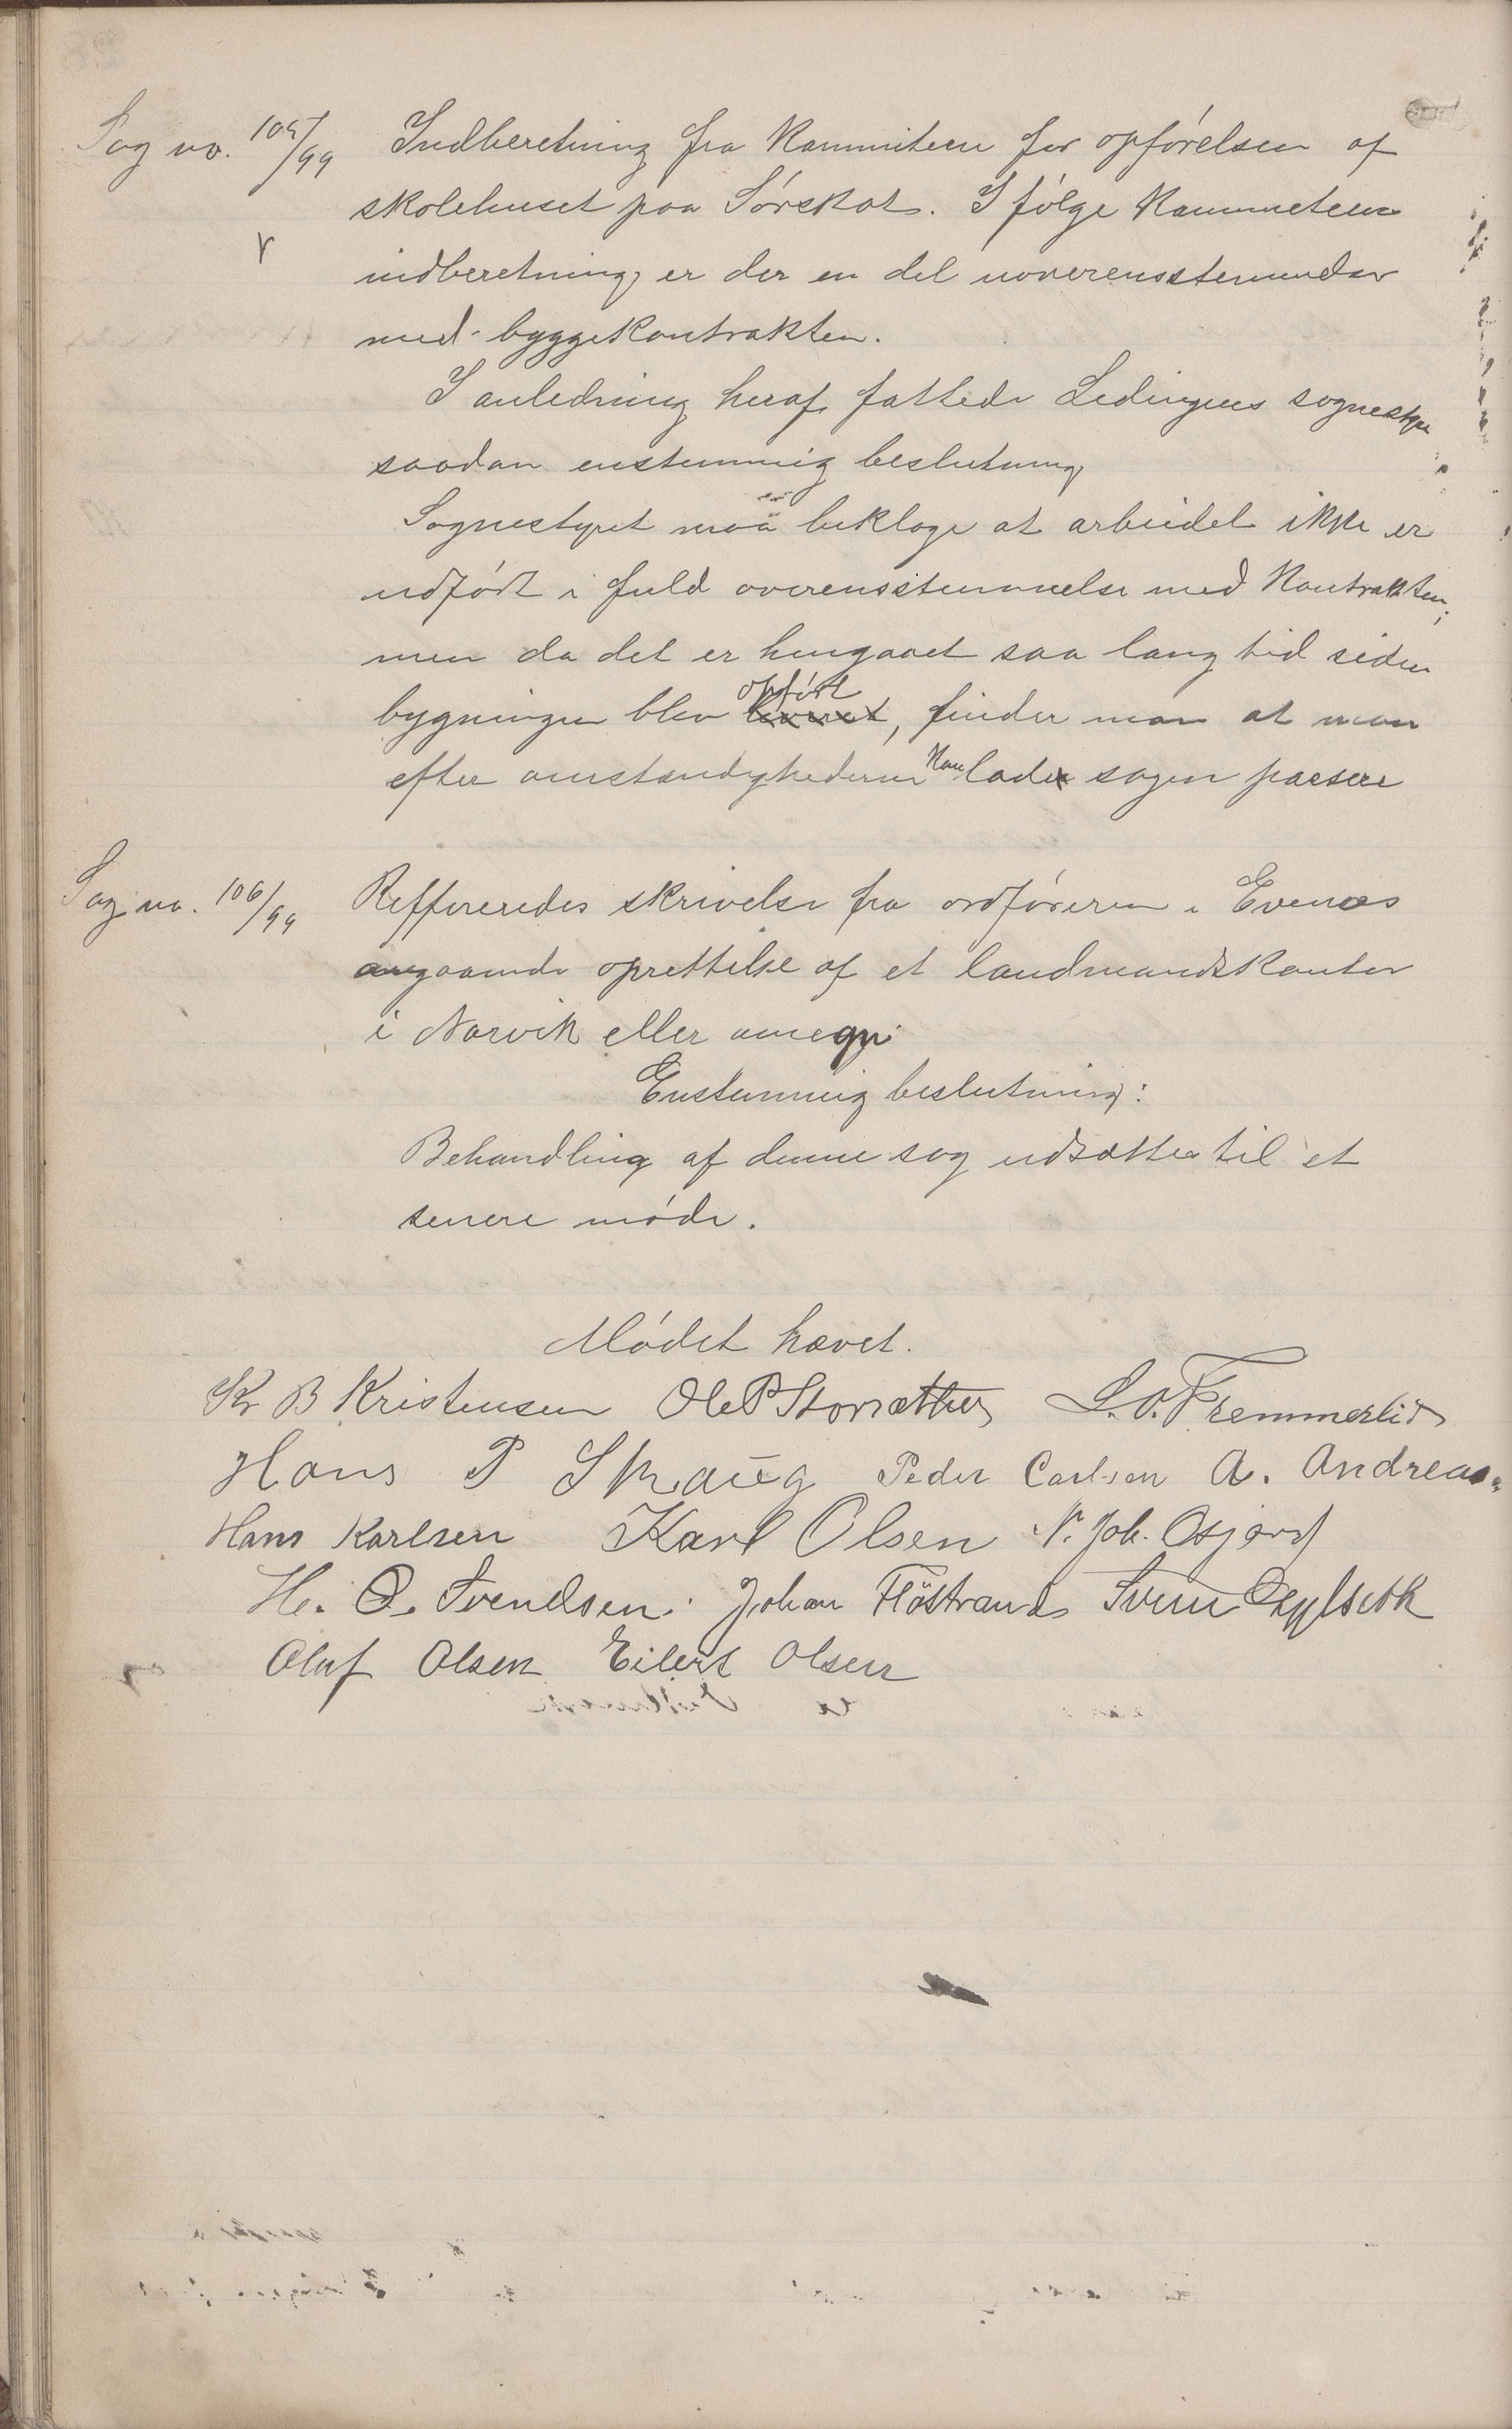 Sag no. 105/99 Indberetning fra Kammiteen for opførelsen af
skolehuset paa Sørskot. I følge Kammeteens
indberetning er der en del uoverensstemmelser
med byggekontrakten.
I anledning heraf fattede Lødingens sognesty
saadan enstemmig beslutning
Sognestyret maa beklage at arbeidet ikke er
udført i fuld overensstemmelse med Kontrakten;
men da det er hengaaet saa lang tid siden
opført
bygningen blev leveret, finder man at man
efter omstændighederne Kan lade sagen passere
Sag no. 106/99 Reffereredes skrivelse fra ordføreren i Evenæs
angaaende oprettelse af et landmandskontor
i Narvik eller omegn.
Enstemmig beslutning:
Behandling af denne sag udsættes til et
senere møde.
Mødet hævet.
Kr B Kristensen Ole P Storsæther L. O. Fremmerlid
Hans P Skaug Peder Carlsen A. Andreas.
Hans Karlsen Karl Olsen N. Joh. Osfjord
He. O. Svendsen. Johan Flöstrand Svein
Oluf Olsen Eilert Olsen